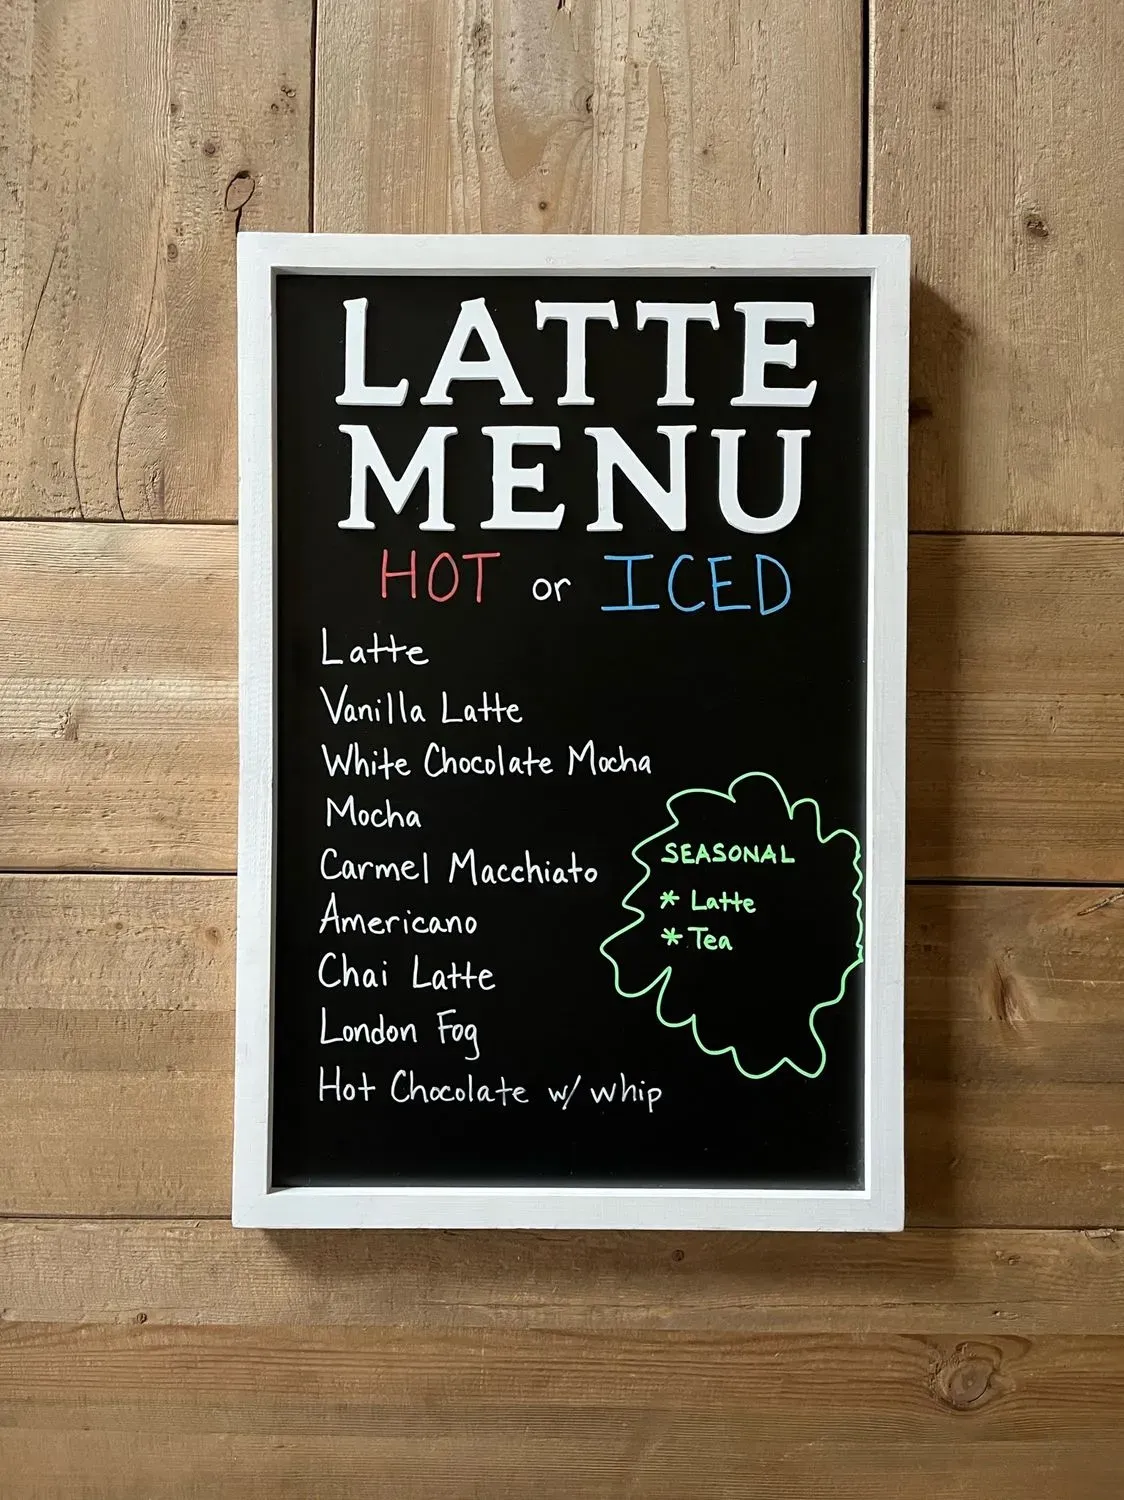 LATTE
MENU
HOT or ICED
Latte
Vanilla Latte
White Chocolate Mocha
Mocha
Carmel Macchiato
Americano
Chai Latte
London Fog
Hot Chocolate w/ whip
SEASONAL
* Latte
* Tea